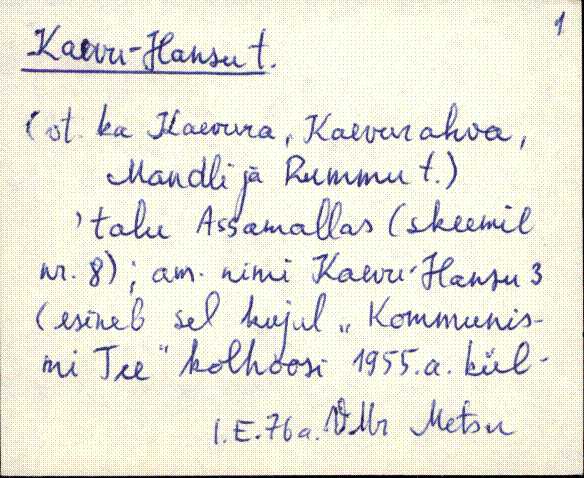 1
Kaevu-Hansu t.
(vt. ka Kaevura, Kaevurahva,
Mandli ja Rummu t.)
'talu Assamallas (skeemil
nr. 8); am. nimi Kaevu-Hansu 3
(esineb sel kujul „Kommunis-
mi Tee" kolhoosi 1955.a. kül-
I.E.76a. VMr Metsu